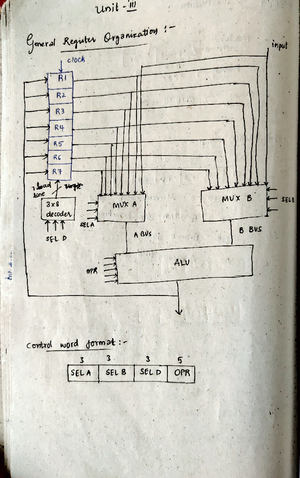 Unit - III
General Register Organization :-
clock
input
R1
R2
R3
R4
R5
R6
R7
7 Load
line
3x8
decoder
SEL D
SELA
MUX A
MUX B
SELB
A BUS
B BUS
OPR
ALU
Control word format :-
3 3 3 5
SEL A SEL B SEL D OPR